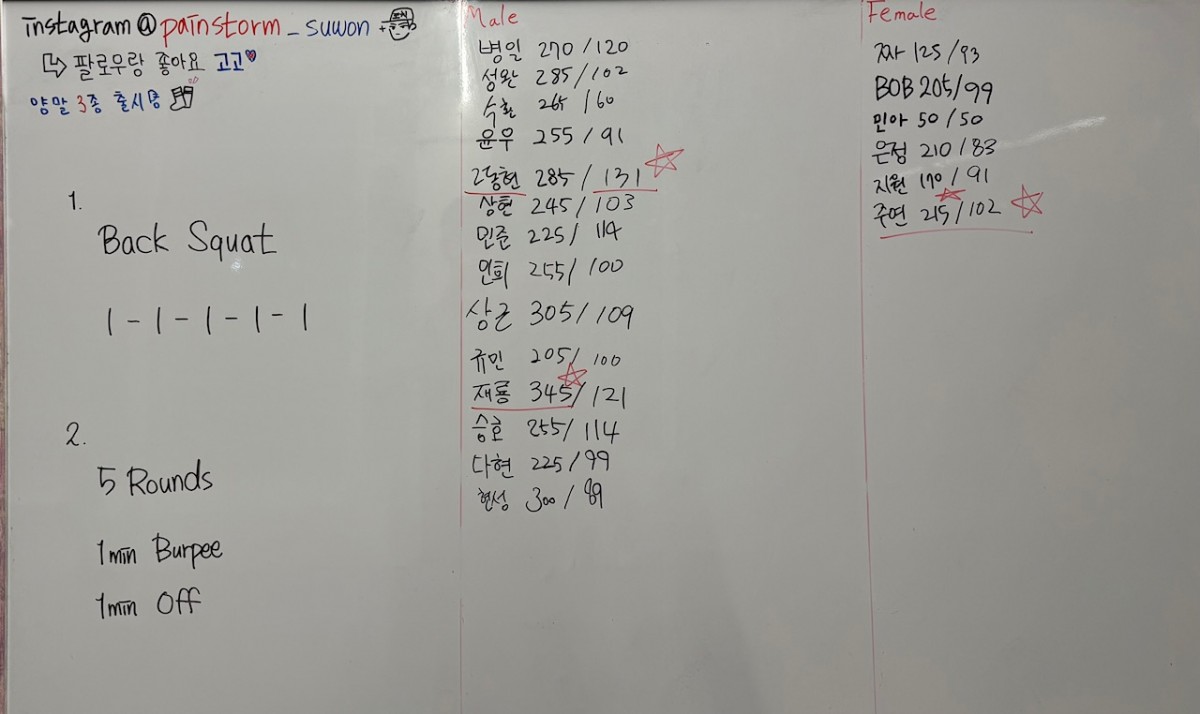 instagram@painstorm_suwon
↳ 팔로우랑 좋아요 고고♥
양말 3종 출시중
1.
Back Squat
1-1-1-1-1
2.
5 Rounds
1min Burpee
1min Off
Male
병일 270/120
성완 285/102
수환 265/60
윤우 255/91
2동현 285/131
상현 245/103
민준 225/114
인희 255/100
상근 305/109
규민 205/100
재룡 345/121
승호 255/114
다현 225/99
현성 300/89
Female
짜 125/93
BOB 205/99
민아 50/50
은정 210/83
지원 170/91
주연 215/102